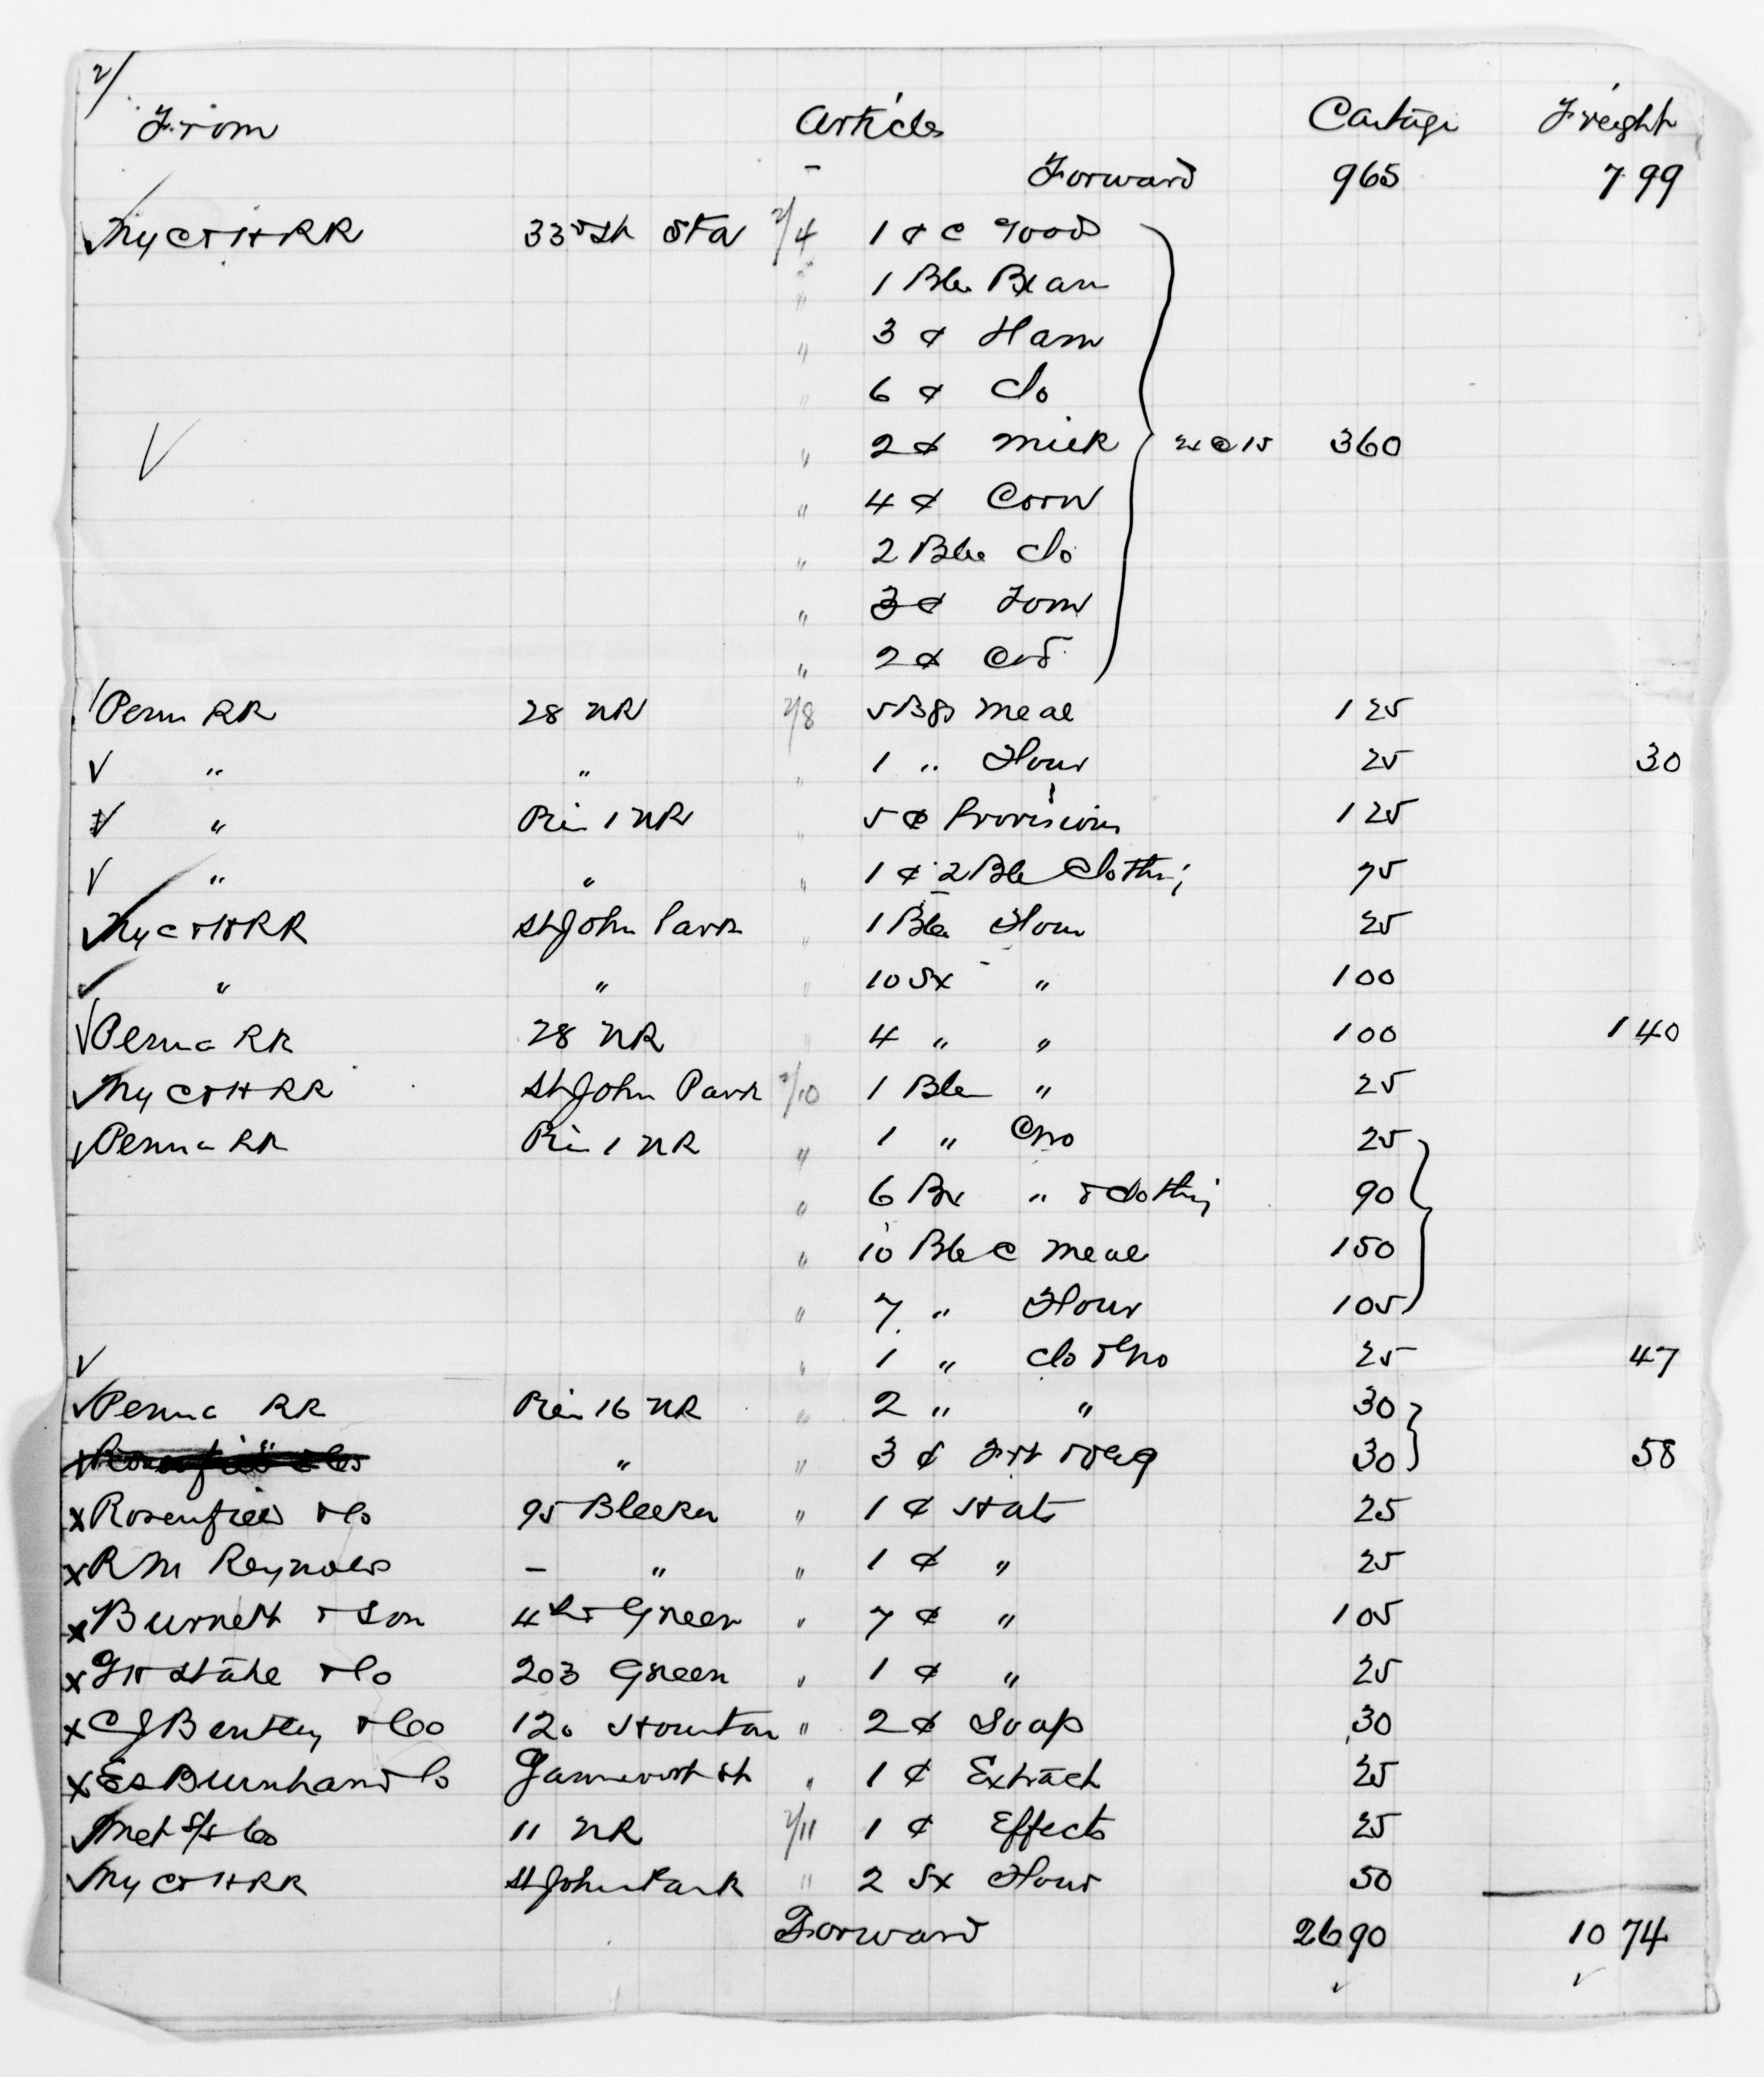 2/
From Articles Cartage Freight
Forward 965 7.99
NyC&HRR 33rd St Sta 2/4 1 ¢ C Goods
" 1 Ble Bean
" 3 ¢ Ham
" 6 ¢ Clo
" 2 ¢ Milk 24@15 360
" 4 ¢ Corn
" 2 Ble Clo
" 3 ¢ Tom
" 2 ¢ Cod
Penn RR 28 NR 2/8 5 Bgs Meal 125
" " " 1 " Flour 25 30
" Pier 1 NR " 5 ¢ Provisions 125
" " " 1 ¢ 2 Ble Clothing 75
NyC&HRR St John Park " 1 Ble Flour 25
" " " 10 Sx " 100
Penna RR 28 NR " 4 " " 100 1 40
NyC&HRR St John Park 2/10 1 Ble " 25
Penna RR Pier 1 NR " 1 " Gro 25
" 6 Bx " & Clothing 90
" 10 Ble C Meal 150
" 7 " Flour 105
" 1 " Clo & Gro 25 47
Penna RR Pier 16 NR " 2 " " 30
" " 3 ¢ 30 58
Rosenfield & Co 95 Bleeker " 1 ¢ Hats 25
R M Reynolds – " " 1 ¢ " 25
Burnett & Son Green " 7 ¢ " 105
Stahe & Co 203 Green " 1 ¢ " 25
C J Bentley & Co 120 Houston " 2 ¢ Soap 30
E S Burnham & Co Gansevoort St " 1 ¢ Extract 25
Met S/S Co 11 NR 2/11 1 ¢ Effects 25
NyC&HRR St John Park " 2 Sx Flour 50
Forward 2690 10 74